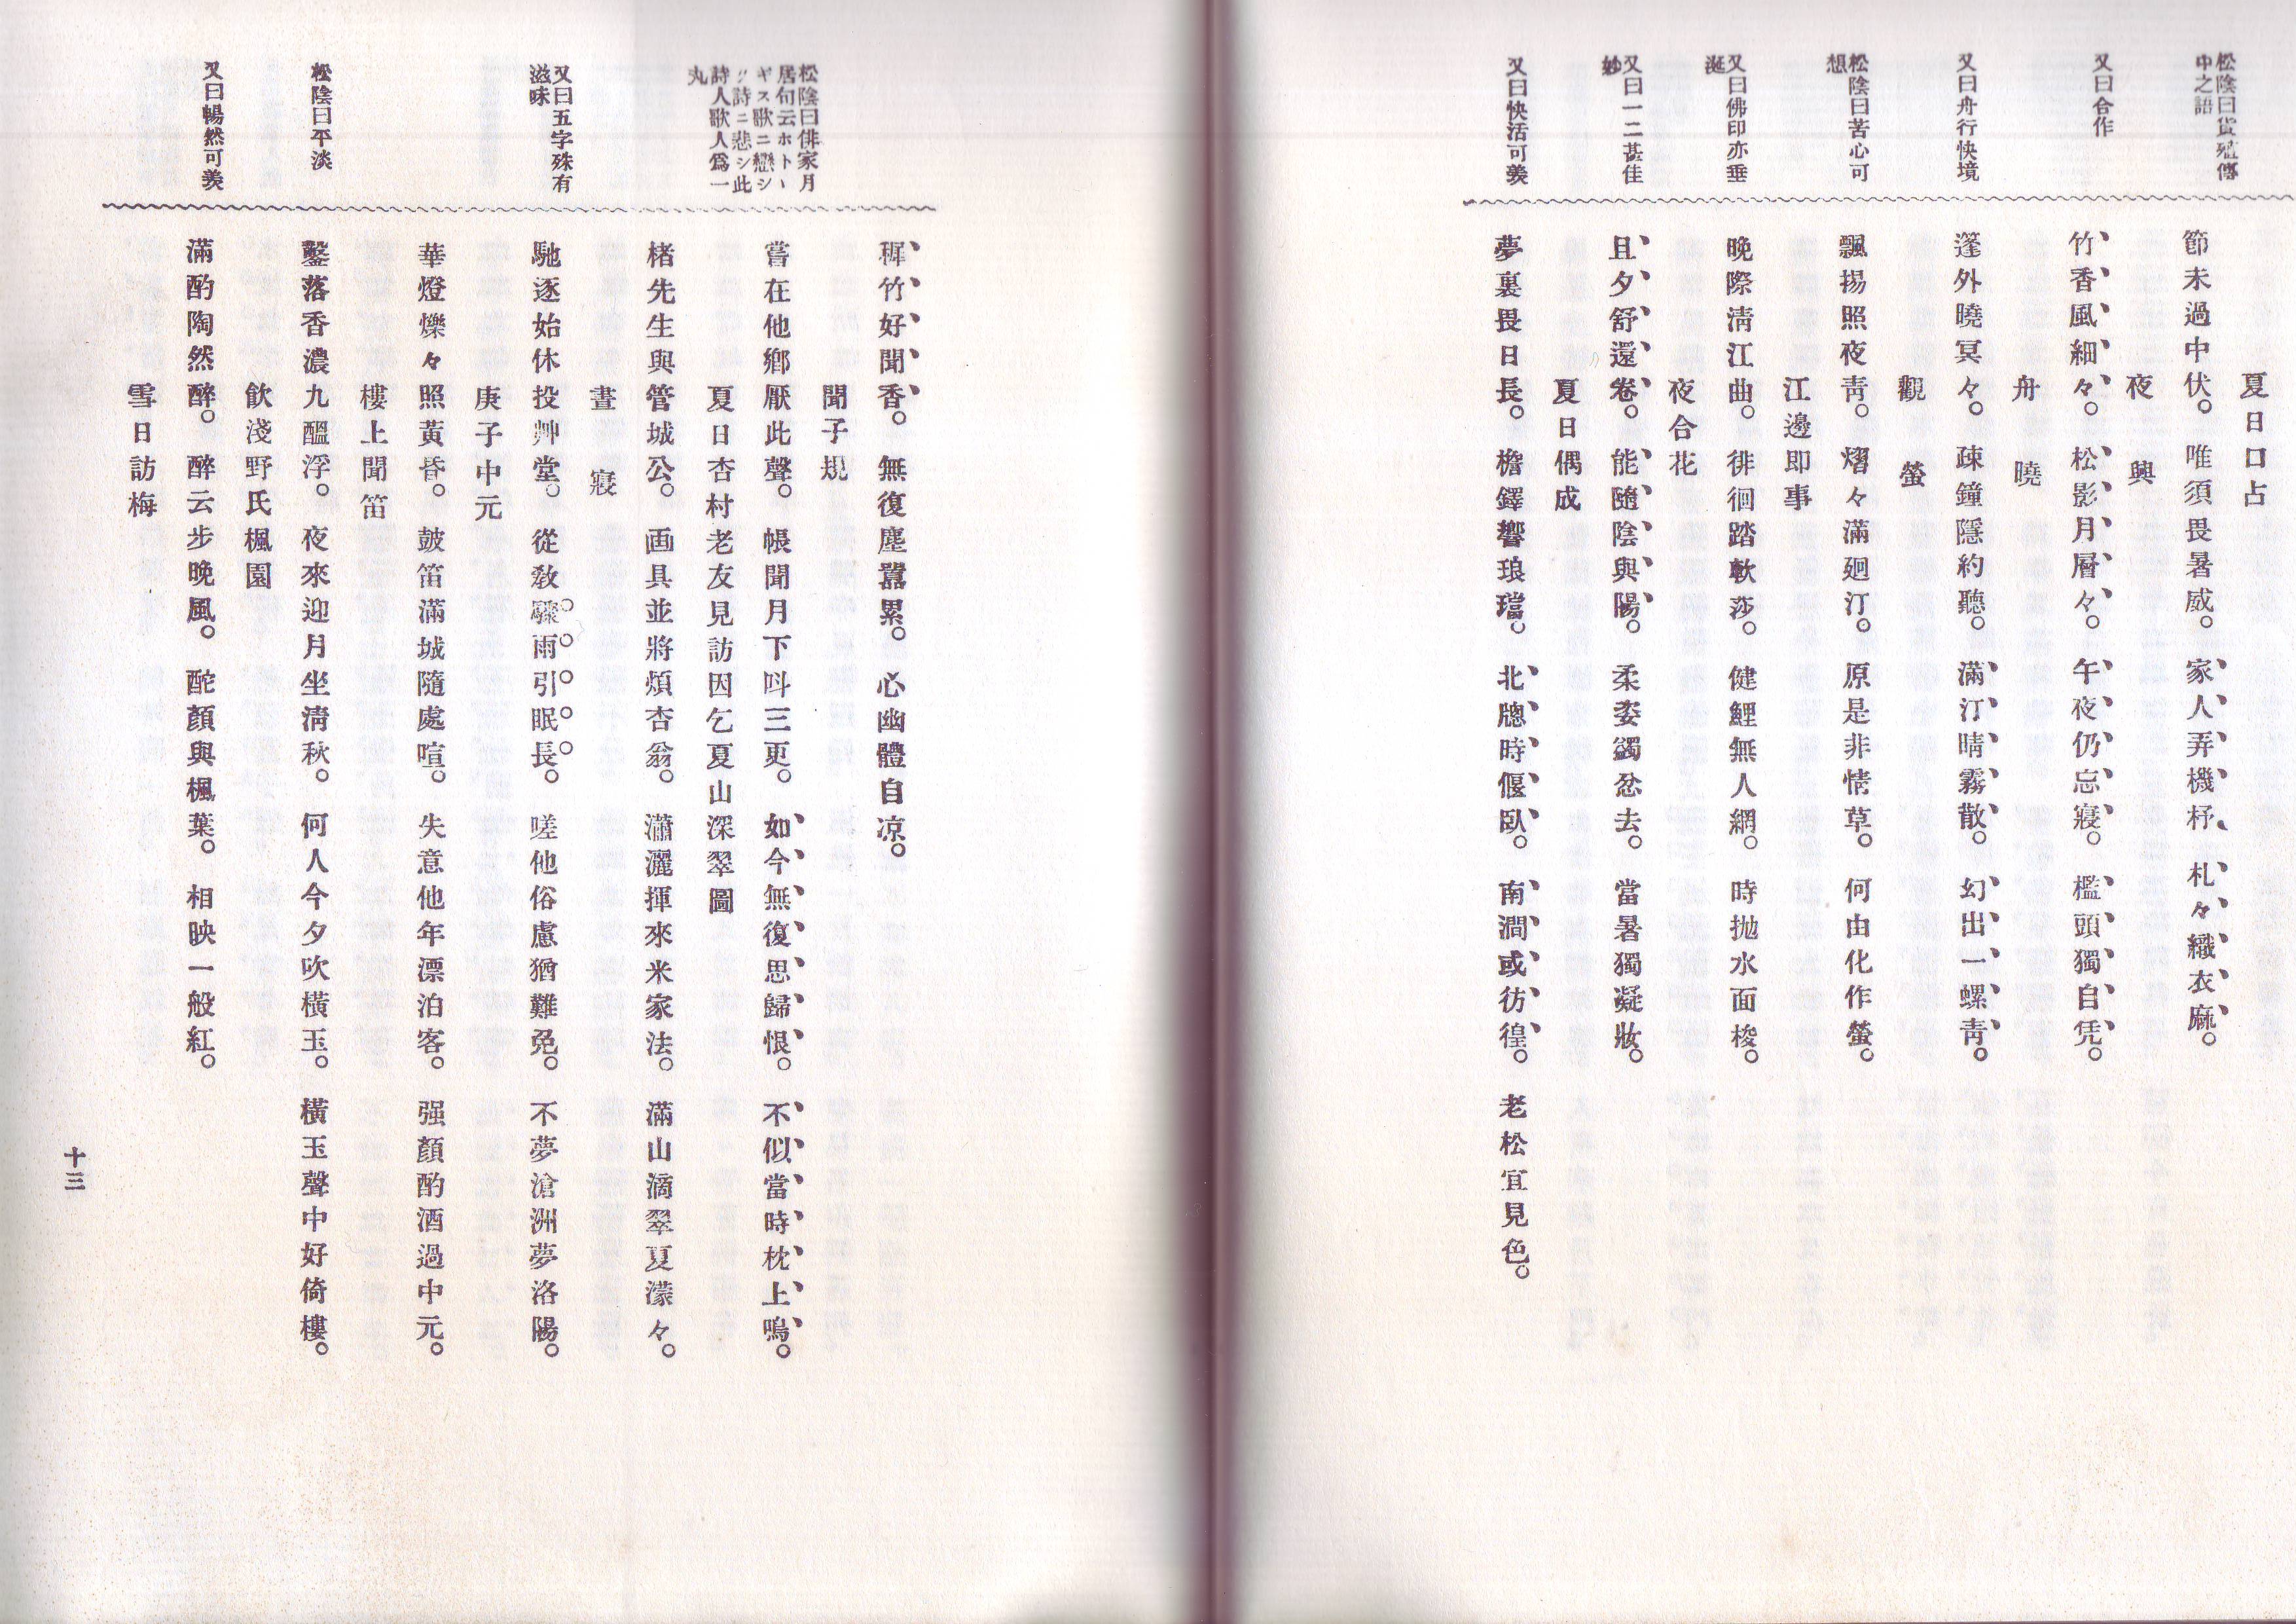 松陰曰貨殖傳
中之語
又曰合作
又曰舟行快境
松陰曰苦心可
想
又曰佛印亦垂
涎
又曰一二甚佳
妙
又曰快活可羨
夏日口占
節未過中伏。唯須畏暑威。家人弄機杼、札々織衣麻。
夜興
竹香風細々。松影月層々。午夜仍忘寢。檻頭獨自凭。
舟曉
篷外曉冥々。疎鐘隱約聽。滿汀晴霧散。幻出一螺靑。
觀螢
飄揚照夜靑。熠々滿廻汀。原是非情草。何由化作螢。
江邊即事
晚際淸江曲。徘徊踏軟莎。健鯉無人網。時抛水面梭。
夜合花
且夕舒還卷。能隨陰與陽。柔姿蠲忿去。當暑獨凝妝。
夏日偶成
夢裏畏日長。檐鐸響琅璫。北牕時偃臥。南澗或彷徨。老松宜見色。
松陰曰俳家月
居句云ホトヽ
ギス歌ニ戀シ
ク詩ニ悲シ此
詩人歌人爲一
丸
又曰五字殊有
滋味
松陰曰平淡
又曰暢然可羨
稺竹好聞香。無復塵囂累。心幽體自凉。
聞子規
嘗在他鄉厭此聲。悵聞月下呌三更。如今無復思歸恨。不似當時枕上鳴。
夏日杏村老友見訪因乞夏山深翠圖
楮先生與管城公。画具並將煩杏翁。瀟灑揮來米家法。滿山滴翠夏濛々。
晝寢
馳逐始休投艸堂。從敎驟雨引眠長。嗟他俗慮猶難免。不夢滄洲夢洛陽。
庚子中元
華燈爍々照黃昏。鼓笛滿城隨處喧。失意他年漂泊客。强顏酌酒過中元。
樓上聞笛
鑿落香濃九醞浮。夜來迎月坐淸秋。何人今夕吹橫玉。橫玉聲中好倚樓。
飮淺野氏楓園
滿酌陶然醉。醉云步晚風。酡顏與楓葉。相映一般紅。
雪日訪梅
十三